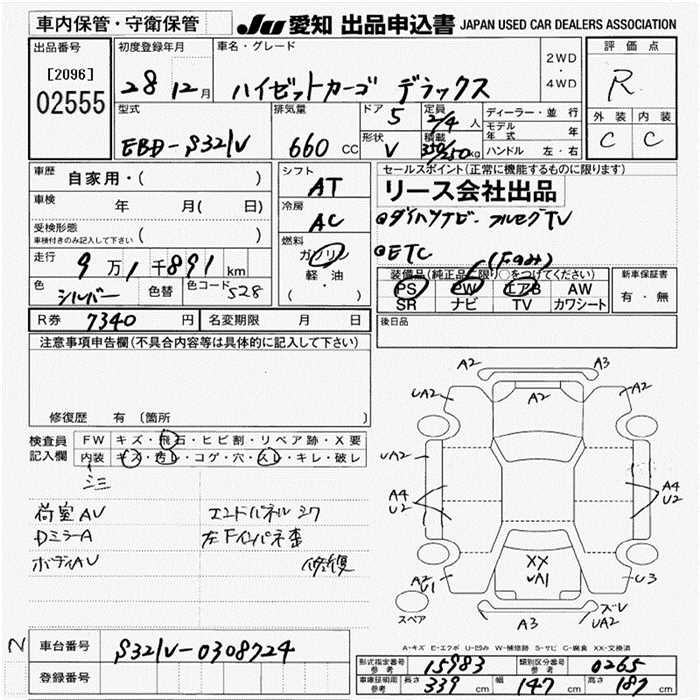 車内保管・守衛保管
JU 愛知 出品申込書 JAPAN USED CAR DEALERS ASSOCIATION
出品番号
[2096]
02555
初度登録年月
28 12月
車名・グレード
ハイゼットカーゴ デラックス
2WD
・
4WD
評価点
R
外装 内装
C C
型式
EBD-S321V
排気量
660 CC
ドア 5
形状 V
定員 2/4 人
積載 350/250 kg
ディーラー・並行
モデル年式 年
ハンドル 左・右
車歴 自家用・( )
車検 年 月( 日)
受検形態
車検付きのみ記入して下さい ( )
走行 9万1千891km
色 シルバー 色替 色コード 528
シフト
AT
冷房
AC
燃料
ガソリン
軽・油
( ・ )
セールスポイント(正常に機能するものに限ります)
リース会社出品
◎ダイハツナビ フルセグTV
◎ETC
(Fのみ)
装備品(純正品に限り○をつけてください)
PS PW エアB AW
SR ナビ TV カワシート
新車保証書
有・無
R券 7340 円 名変期限 月 日
後日品
注意事項申告欄(不具合内容等は具体的に記入して下さい)
修復歴 有〔箇所 〕
検査員記入欄
FW キズ・飛石・ヒビ割・リペア跡・X要
内装 キズ・汚レ・コゲ・穴・スレ・キレ・破レ
荷室AU エンドパネルシワ
DミラーA 左Fインパネ歪
ボディAU 修復
A2 A3
UA2 A2 A2
UA2
A4 U2 A4 U2
XX
UA1
A2 U1 U3
スペア
A3 ズレ UA2
A-キズ E-エクボ U-凹み W-補修跡 S-サビ C-腐食 XX-交換済
N
車台番号 S321V-0308724
登録番号
形式指定番号 参考 15983 類別区分番号 参考 0265
車庫証明用 参考 長さ 339 cm 幅 147 cm 高さ 187 cm